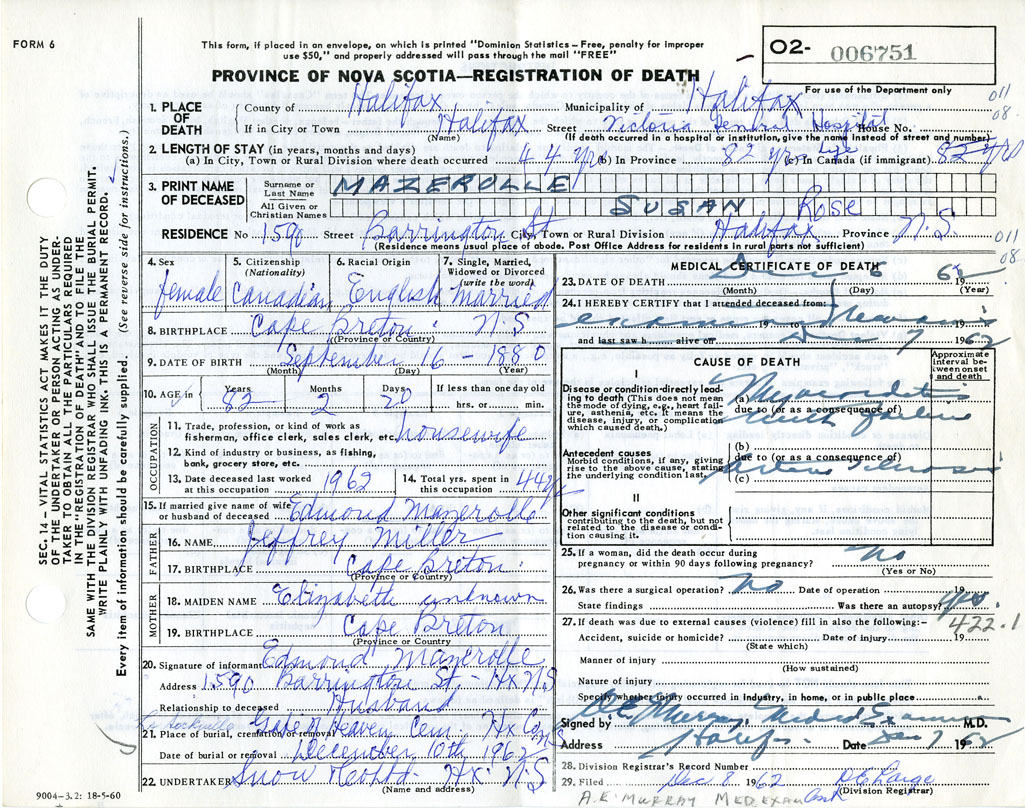 FORM 6
This form, if placed in an envelope, on which is printed "Dominion Statistics – Free, penalty for improper
use $50," and properly addressed will pass through the mail "FREE"
O2- 006751
PROVINCE OF NOVA SCOTIA—REGISTRATION OF DEATH
For use of the Department only
011
08.
1. PLACE OF DEATH
County of Halifax Municipality of Halifax
If in City or Town Halifax Street Victoria General Hospital House No.
(Name) (If death occurred in a hospital or institution, give the name instead of street and number)
2. LENGTH OF STAY (in years, months and days)
(a) In City, Town or Rural Division where death occurred 44 yrs (b) In Province 82 yrs (c) In Canada (if immigrant) 82 yrs
3. PRINT NAME OF DECEASED
Surname or Last Name MAZEROLLE
All Given or Christian Names SUSAN Rose
RESIDENCE No 1590 Street Barrington St City, Town or Rural Division Halifax Province N.S
(Residence means usual place of abode. Post Office Address for residents in rural parts not sufficient)
011
08
4. Sex female
5. Citizenship (Nationality) Canadian
6. Racial Origin English
7. Single, Married, Widowed or Divorced (write the word) Married
8. BIRTHPLACE Cape Breton N.S
(Province or Country)
9. DATE OF BIRTH September 16 - 1880
(Month) (Day) (Year)
10. AGE in Years 82 Months 2 Days 20 If less than one day old
hrs. or min.
OCCUPATION
11. Trade, profession, or kind of work as
fisherman, office clerk, sales clerk, etc. housewife
12. Kind of industry or business, as fishing,
bank, grocery store, etc.
13. Date deceased last worked at this occupation 1962
14. Total yrs. spent in this occupation 44 yrs
15. If married give name of wife or husband of deceased Edmond Mazerolle
FATHER
16. NAME Jeffrey Miller
17. BIRTHPLACE Cape Breton
(Province or Country)
MOTHER
18. MAIDEN NAME Elizabeth unknown
19. BIRTHPLACE Cape Breton
(Province or Country)
20. Signature of informant Edmond Mazerolle
Address 1590 Barrington St - Hx N.S
Relationship to deceased Husband
21. Place of burial, cremation or removal Gate of Heaven Cem. Hx Co N.S
Date of burial or removal December 10th 1962
22. UNDERTAKER Snow Hx. N.S
(Name and address)
MEDICAL CERTIFICATE OF DEATH
23. DATE OF DEATH Dec 6 62
(Month) (Day) (Year)
24. I HEREBY CERTIFY that I attended deceased from:
19 to 19
and last saw h alive on Dec 7 1962
CAUSE OF DEATH
Approximate interval between onset and death
I
Disease or condition directly leading to death (This does not mean the mode of dying, e.g., heart failure, asthenia, etc. It means the disease, injury, or complication which caused death.)
(a) Myocarditis
due to (or as a consequence of)
with failure
Antecedent causes
Morbid conditions, if any, giving rise to the above cause, stating the underlying condition last.
(b)
due to (or as a consequence of)
(c)
II
Other significant conditions
contributing to the death, but not related to the disease or condition causing it.
25. If a woman, did the death occur during
pregnancy or within 90 days following pregnancy? No
(Yes or No)
26. Was there a surgical operation? No Date of operation 19
State findings Was there an autopsy? yes
27. If death was due to external causes (violence) fill in also the following:- 422.1
Accident, suicide or homicide? Date of injury 19
(State which)
Manner of injury
(How sustained)
Nature of injury
Specify whether injury occurred in Industry, in home, or in public place
Signed by A.E. Murray Medical Examiner M.D.
Address Halifax Date Dec 7 1962
28. Division Registrar's Record Number
29. Filed Dec 8 1962
(Division Registrar)
A.E. MURRAY MED. EXAM
SEC. 14 – VITAL STATISTICS ACT MAKES IT THE DUTY
OF THE UNDERTAKER OR PERSON ACTING AS UNDER-
TAKER TO OBTAIN ALL THE PARTICULARS REQUIRED
IN THE "REGISTRATION OF DEATH" AND TO FILE THE
SAME WITH THE DIVISION REGISTRAR WHO SHALL ISSUE THE BURIAL PERMIT.
WRITE PLAINLY WITH UNFADING INK. THIS IS A PERMANENT RECORD.
Every item of information should be carefully supplied. (See reverse side for instructions.)
9004-3.2: 18-5-60